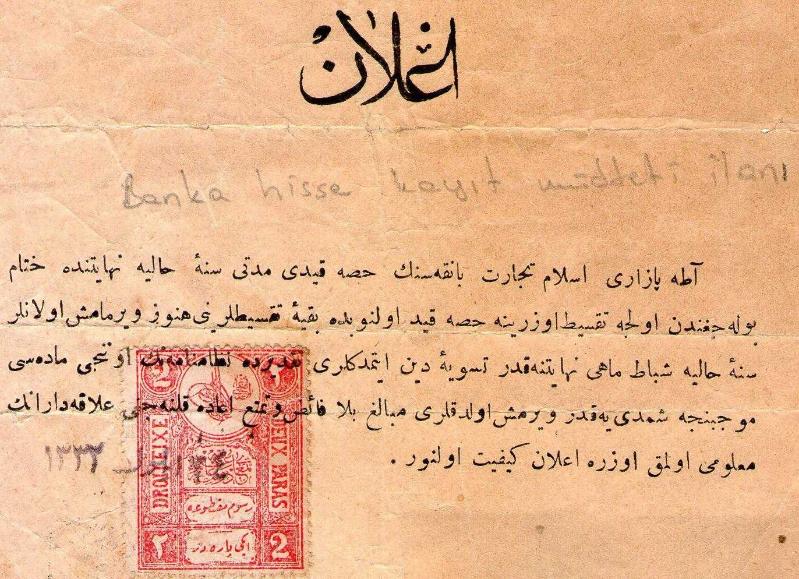 اعلان
Banka hisse kayıt müddeti ilanı
آطه پازاری اسلام تجارت بانقه‌سنك حصه قیدی مدتی سنهٔ حالیه نهایتنده ختام
بوله‌جغندن اولجه تقسیط اوزرینه حصه قید اولنوبده بقیهٔ تقسیطلرینی هنوز ویرمامش اولانلر
سنهٔ حالیه شباط ماهی نهایتنه‌قدر تسویهٔ دین ایتمدکلری تقدیرده نظامنامه‌نك اوننجی ماده‌سی
موجبنجه شمدی‌یه‌قدر ویرمش اولدقلری مبالغ بلا فائض وتمتع اعاده قلنه‌جغی علاقه‌دارانك
معلومی اولمق اوزره اعلان کیفیت اولنور .
١٣٣٢
DROIT FIXE
DEUX PARAS
رسوم مقطوعه
ایکی پاره در
٢
2